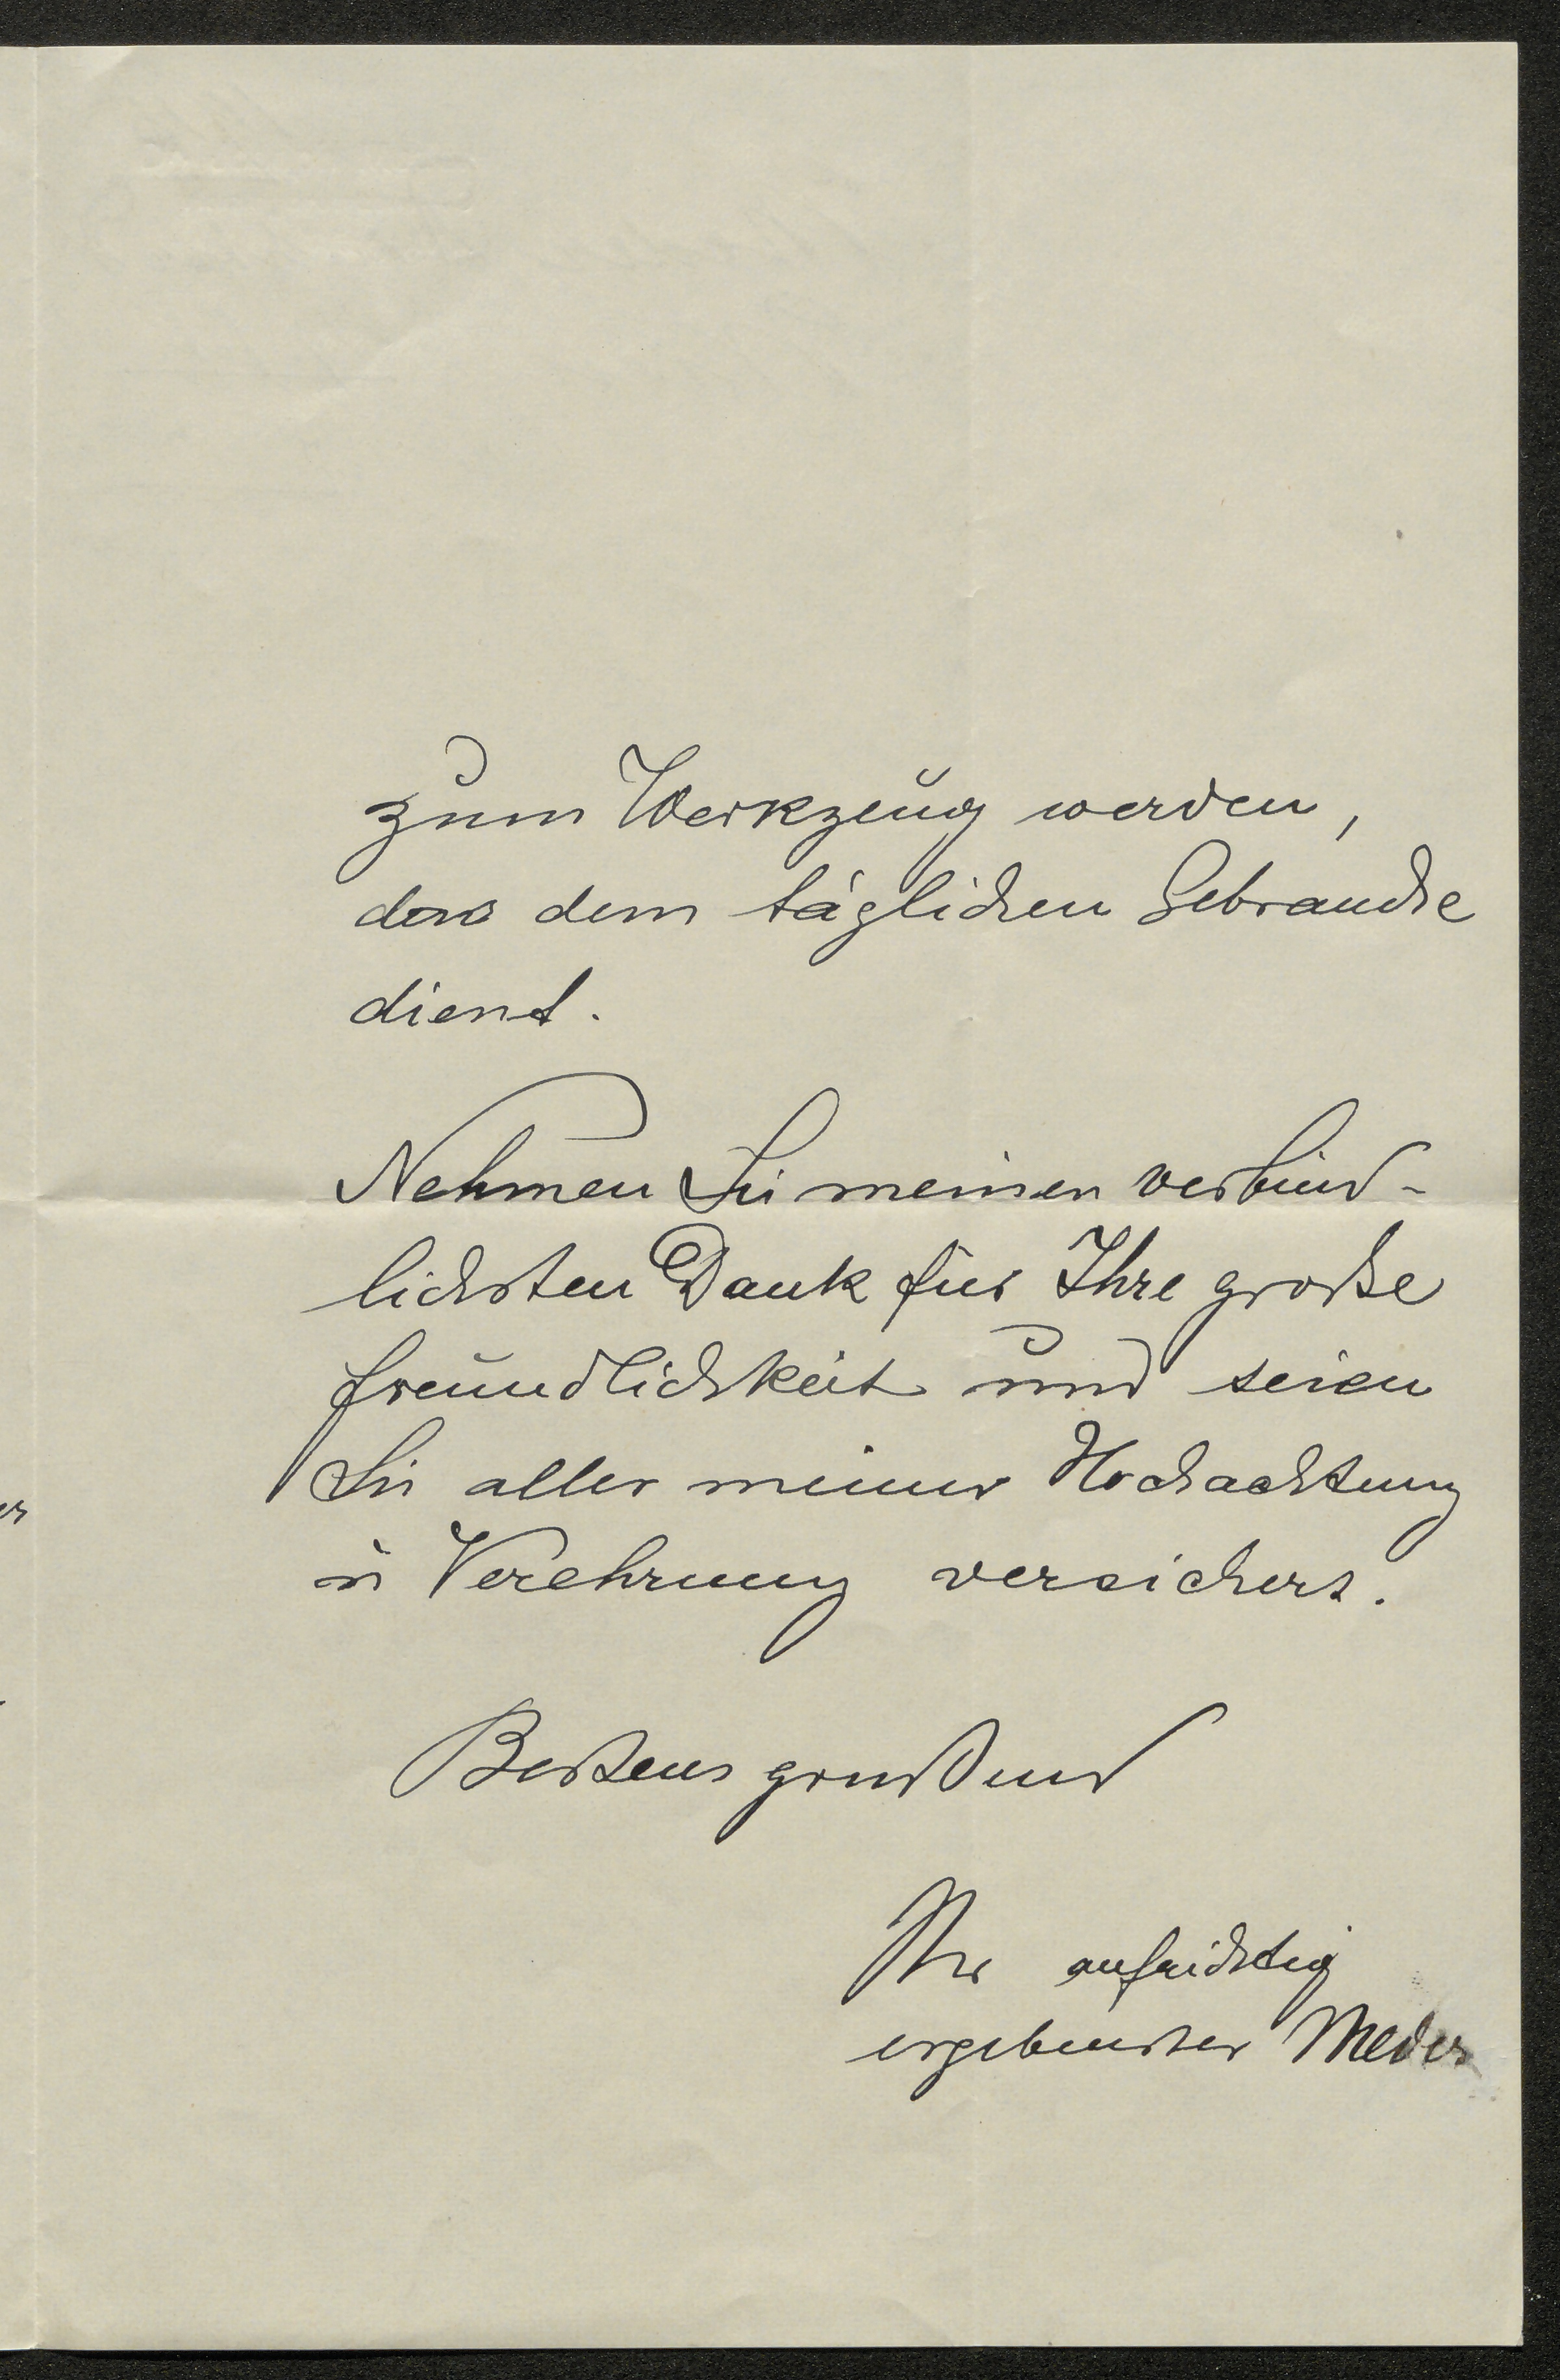 zum Werkzeug werden,
das dem täglichen Gebrauche
dient.
Nehmen Sie meinen verbind-
lichsten Dank für Ihre große
Freundlichkeit und seien
Sie aller meiner Hochachtung
u Verehrung versichert.
Bestens grüßend
Ihr aufrichtig
ergebenster Meder